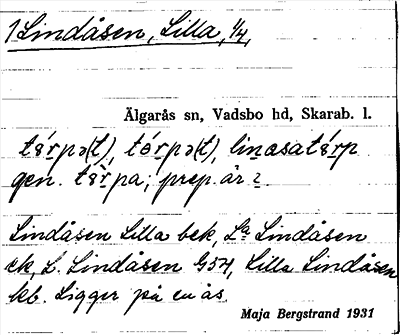 1 Lindåsen, Lilla, 1/4,
Älgarås sn, Vadsbo hd, Skarab. l.
tɛ́rpə(t), tɵ́rpə(t), linasatɛ́rp
gen. tɛ̀rpa; prep. är 2.
Lindåsen Lilla bek, La Lindåsen
ek, L. Lindåsen G54, Lilla Lindåsen
kb. Ligger på en ås.
Maja Bergstrand 1931